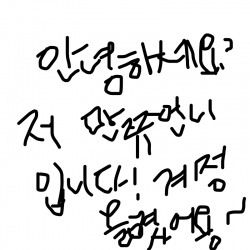 안녕하세요?
저 만쥬언니
입니다! 계정
옮겼어요~